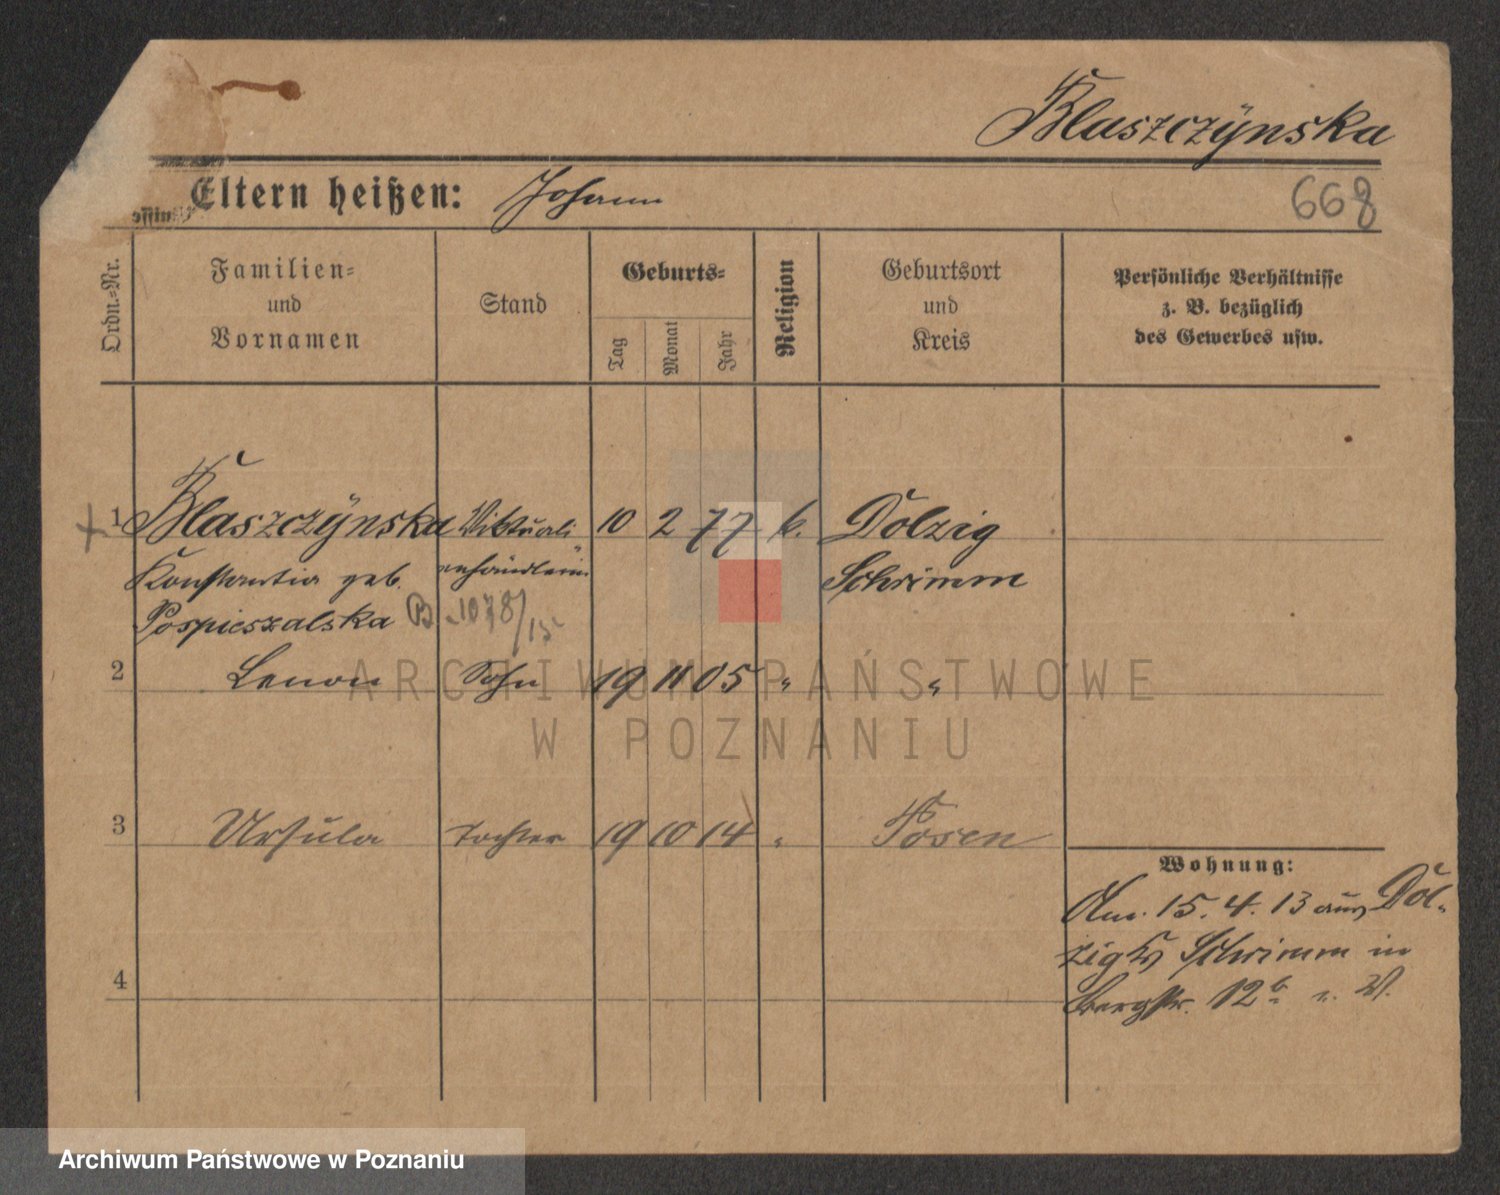 Blaszczÿnska
Eltern heißen: Johann
668
Ordn.=Nr.
Familien=
und
Vornamen
Stand
Geburts=
Tag
Monat
Jahr
Religion
Geburtsort
und
Kreis
Persönliche Verhältnisse
z. B. bezüglich
des Gewerbes usw.
1 Blaszczÿnska Viktuali 10 2 77 k. Dolzig
Konstantia geb. enhändlerin Schrimm
Pospieszalska B. 1078/15
2 Lenon Sohn 19 11 05 " "
3 Ursula Tochter 19 10 14 " Posen
Wohnung:
Am. 15. 4. 13 aus Dol-
zig Kr Schrimm in
Bergstr. 12b v. W.
4
ARCHIWUM PAŃSTWOWE
W POZNANIU
Archiwum Państwowe w Poznaniu